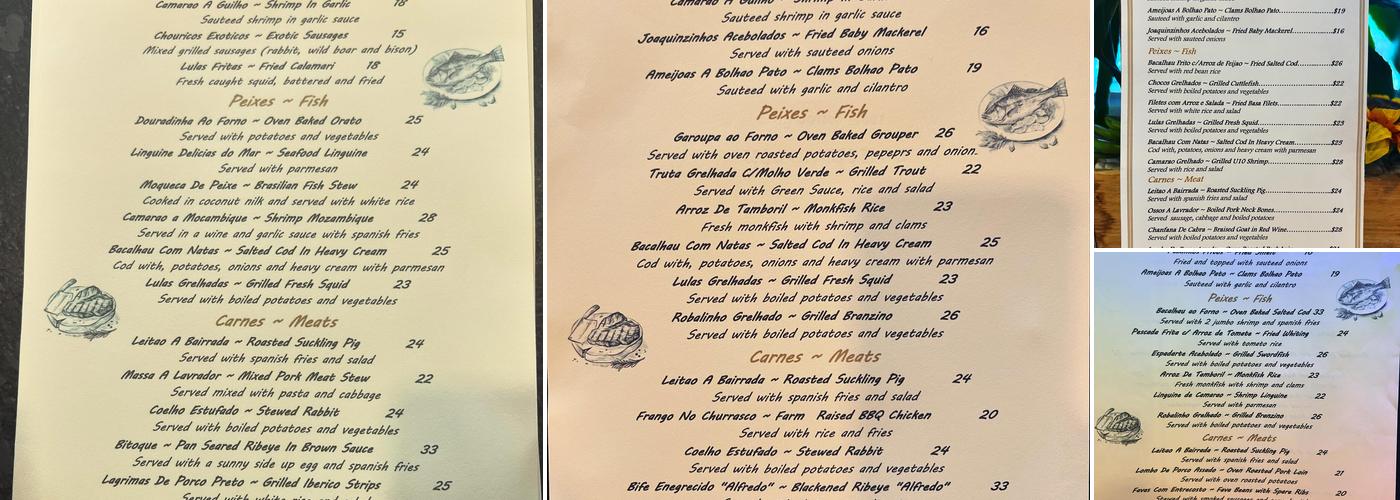 Camarao A Guilho ~ Shrimp In Garlic 18
Sauteed shrimp in garlic sauce
Chouricos Exoticos ~ Exotic Sausages 15
Mixed grilled sausages (rabbit, wild boar and bison)
Lulas Fritas ~ Fried Calamari 18
Fresh caught squid, battered and fried
Peixes ~ Fish
Douradinha Ao Forno ~ Oven Baked Orato 25
Served with potatoes and vegetables
Linguine Delicias do Mar ~ Seafood Linguine 24
Served with parmesan
Moqueca De Peixe ~ Brasilian Fish Stew 24
Cooked in coconut nilk and served with white rice
Camarao a Mocambique ~ Shrimp Mozambique 28
Served in a wine and garlic sauce with spanish fries
Bacalhau Com Natas ~ Salted Cod In Heavy Cream 25
Cod with, potatoes, onions and heavy cream with parmesan
Lulas Grelhadas ~ Grilled Fresh Squid 23
Served with boiled potatoes and vegetables
Carnes ~ Meats
Leitao A Bairrada ~ Roasted Suckling Pig 24
Served with spanish fries and salad
Massa A Lavrador ~ Mixed Pork Meat Stew 22
Served mixed with pasta and cabbage
Coelho Estufado ~ Stewed Rabbit 24
Served with boiled potatoes and vegetables
Bitoque ~ Pan Seared Ribeye In Brown Sauce 33
Served with a sunny side up egg and spanish fries
Lagrimas De Porco Preto ~ Grilled Iberico Strips 25
Sauteed shrimp in garlic sauce
Joaquinzinhos Acebolados ~ Fried Baby Mackerel 16
Served with sauteed onions
Ameijoas A Bolhao Pato ~ Clams Bolhao Pato 19
Sauteed with garlic and cilantro
Peixes ~ Fish
Garoupa ao Forno ~ Oven Baked Grouper 26
Served with oven roasted potatoes, pepeprs and onion.
Truta Grelhada C/Molho Verde ~ Grilled Trout 22
Served with Green Sauce, rice and salad
Arroz De Tamboril ~ Monkfish Rice 23
Fresh monkfish with shrimp and clams
Bacalhau Com Natas ~ Salted Cod In Heavy Cream 25
Cod with, potatoes, onions and heavy cream with parmesan
Lulas Grelhadas ~ Grilled Fresh Squid 23
Served with boiled potatoes and vegetables
Robalinho Grelhado ~ Grilled Branzino 26
Served with boiled potatoes and vegetables
Carnes ~ Meats
Leitao A Bairrada ~ Roasted Suckling Pig 24
Served with spanish fries and salad
Frango No Churrasco ~ Farm Raised BBQ Chicken 20
Served with rice and fries
Coelho Estufado ~ Stewed Rabbit 24
Served with boiled potatoes and vegetables
Bife Enegrecido "Alfredo" ~ Blackened Ribeye "Alfredo" 33
Ameijoas A Bolhao Pato ~ Clams Bolhao Pato $19
Sauteed with garlic and cilantro
Joaquinzinhos Acebolados ~ Fried Baby Mackerel $16
Served with sauteed onions
Peixes ~ Fish
Bacalhau Frito c/Arroz de Feijao ~ Fried Salted Cod $26
Served with red bean rice
Chocos Grelhados ~ Grilled Cuttlefish $22
Served with boiled potatoes and vegetables
Filetes com Arroz e Salada ~ Fried Basa Filets $22
Served with white rice and salad
Lulas Grelhadas ~ Grilled Fresh Squid $23
Served with boiled potatoes and vegetables
Bacalhau Com Natas ~ Salted Cod In Heavy Cream $25
Cod with, potatoes, onions and heavy cream with parmesan
Camarao Grelhado ~ Grilled U10 Shrimp $28
Served with rice and salad
Carnes ~ Meat
Leitao A Bairrada ~ Roasted Suckling Pig $24
Served with spanish fries and salad
Ossos A Lavrador ~ Boiled Pork Neck Bones $24
Served sausage, cabbage and boiled potatoes
Chanfana De Cabra ~ Braised Goat in Red Wine $28
Served with boiled potatoes and vegetables
Fried and topped with sauteed onions
Ameijoas A Bolhao Pato ~ Clams Bolhao Pato 19
Sauteed with garlic and cilantro
Peixes ~ Fish
Bacalhau ao Forno ~ Oven Baked Salted Cod 33
Served with 2 jumbo shrimp and spanish fries
Pescada Frita c/ Arroz de Tomate ~ Fried Whiting 24
Served with tometo rice
Espadarte Acebolado ~ Grilled Swordfish 26
Served with boiled potatoes and vegetables
Arroz De Tamboril ~ Monkfish Rice 23
Fresh monkfish with shrimp and clams
Linguine de Camarao ~ Shrimp Linguine 22
Served with parmesan
Robalinho Grelhado ~ Grilled Branzino 26
Served with boiled potatoes and vegetables
Carnes ~ Meats
Leitao A Bairrada ~ Roasted Suckling Pig 24
Served with spanish fries and salad
Lombo De Porco Assado ~ Oven Roasted Pork Loin 21
Served with oven roasted potatoes
Favas Com Entrecosto ~ Fava Beans with Spare Ribs 20